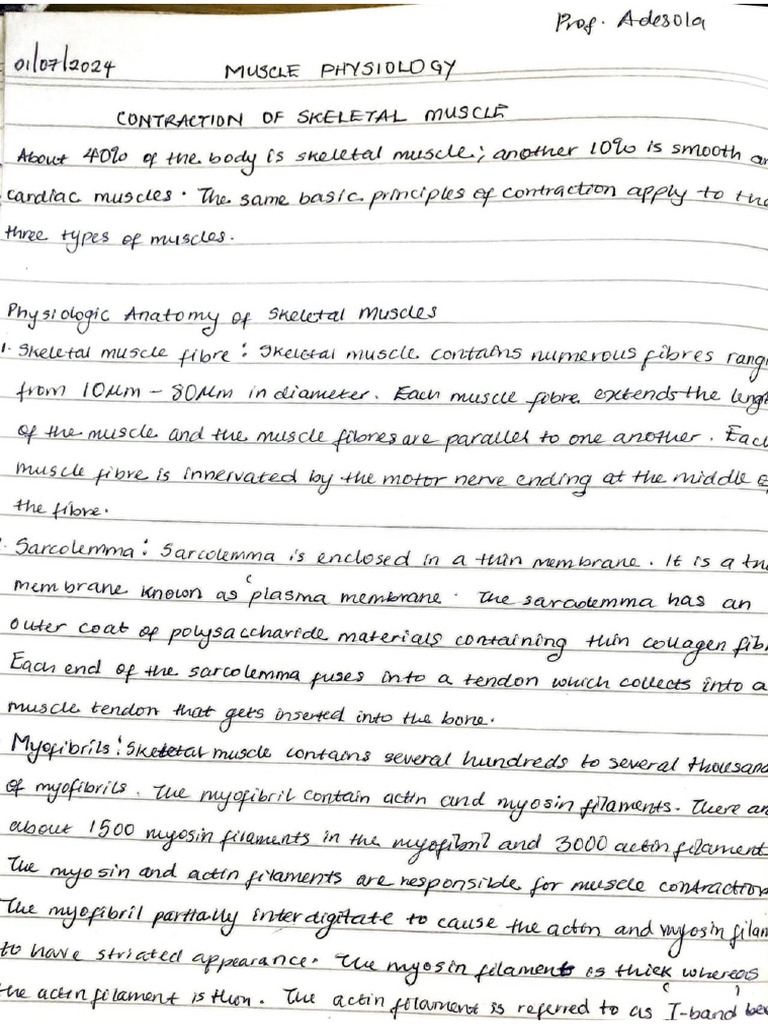 Prof. Adesola
01/07/2024
MUSCLE PHYSIOLOGY
CONTRACTION OF SKELETAL MUSCLE
About 40% of the body is skeletal muscle; another 10% is smooth an
cardiac muscles. The same basic principles of contraction apply to the
three types of muscles.
Physiologic Anatomy of Skeletal Muscles
1. Skeletal muscle fibre: Skeletal muscle contains numerous fibres rang
from 10μm - 80μm in diameter. Each muscle fibre extends the leng
of the muscle and the muscle fibres are parallel to one another. Eac
muscle fibre is innervated by the motor nerve ending at the middle o
the fibre.
. Sarcolemma: Sarcolemma is enclosed in a thin membrane. It is a
membrane known as 'plasma membrane. The sarcolemma has an
outer coat of polysaccharide materials containing thin collagen fib
Each end of the sarcolemma fuses into a tendon which collects into a
muscle tendon that gets inserted into the bone.
Myofibrils: Skeletal muscle contains several hundreds to several thousand
of myofibrils. The myofibril contain actin and myosin filaments. There ar
about 1500 myosin filaments in the myofibril and 3000 actin filament
The myosin and actin filaments are responsible for muscle contraction
The myofibril partially interdigitate to cause the actin and myosin filam
to have striated appearance. The myosin filament is thick whereas
the actin filament is thin. The actin filament is referred to as 'I-band' bec